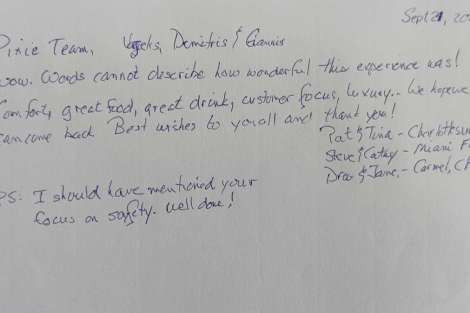 Sept 21, 20
Pixie Team, Vagelis, Demitris & Giannis
wow. Words cannot describe how wonderful this experience was!
Comfort, great food, great drink, customer focus, luxury.. We hope we
can come back Best wishes to you all and thank you!
Pat & Tina - Charlottesv
Steve & Cathy - Miami F
Drew & Jane, - Carmel, CA
PS: I should have mentioned your
focus on safety. well done!